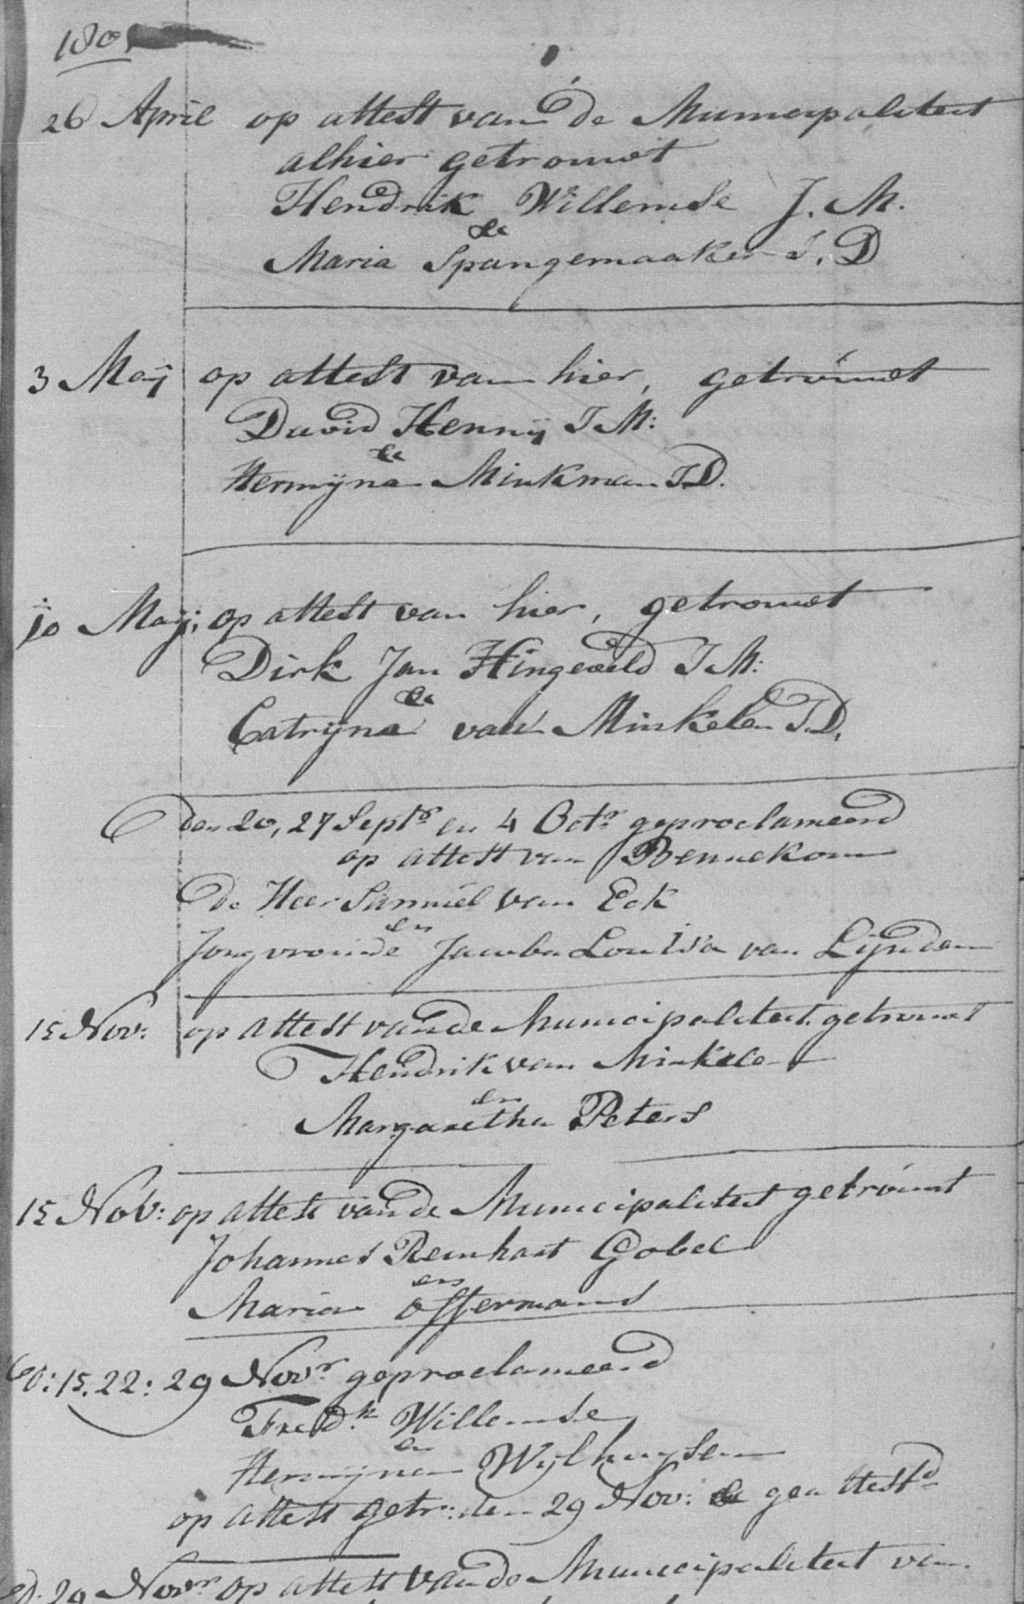 1801
26 April op attest van de Municipaliteit
alhier getrouwt
Hendrik Willemse J. M.
&
Maria Spangemaaker J. D
3 Maij op attest van hier, getrouwt
David Hennij J M:
&
Hermijna Minkman J.D.
10 Maij; op attest van hier, getrouwt
Dirk Jan Hingeveld J M:
&
Catrijna van Minkelen J.D.
den 20, 27 Septr en 4 Octr geproclameerd
op attest van Bennekom
de Heer Samuël van Eck
en
Jongvrouwe Jacoba Louisa van Lijnden
15 Nov: op attest van de Municipaliteit getrouwt
Hendrik van Minkele
en
Margaretha Peters
15 Nov: op attest van de Municipaliteit getrouwt
Johannes Reinhart Gobel
en
Maria Offermans
15. 22: 29 Novr geproclameerd
Fredk Willemse
en
Hermijna Wijlhuysen
op attest getr: den 29 Nov: geattestd
d. 29 Novr op attest van de Municipaliteit van